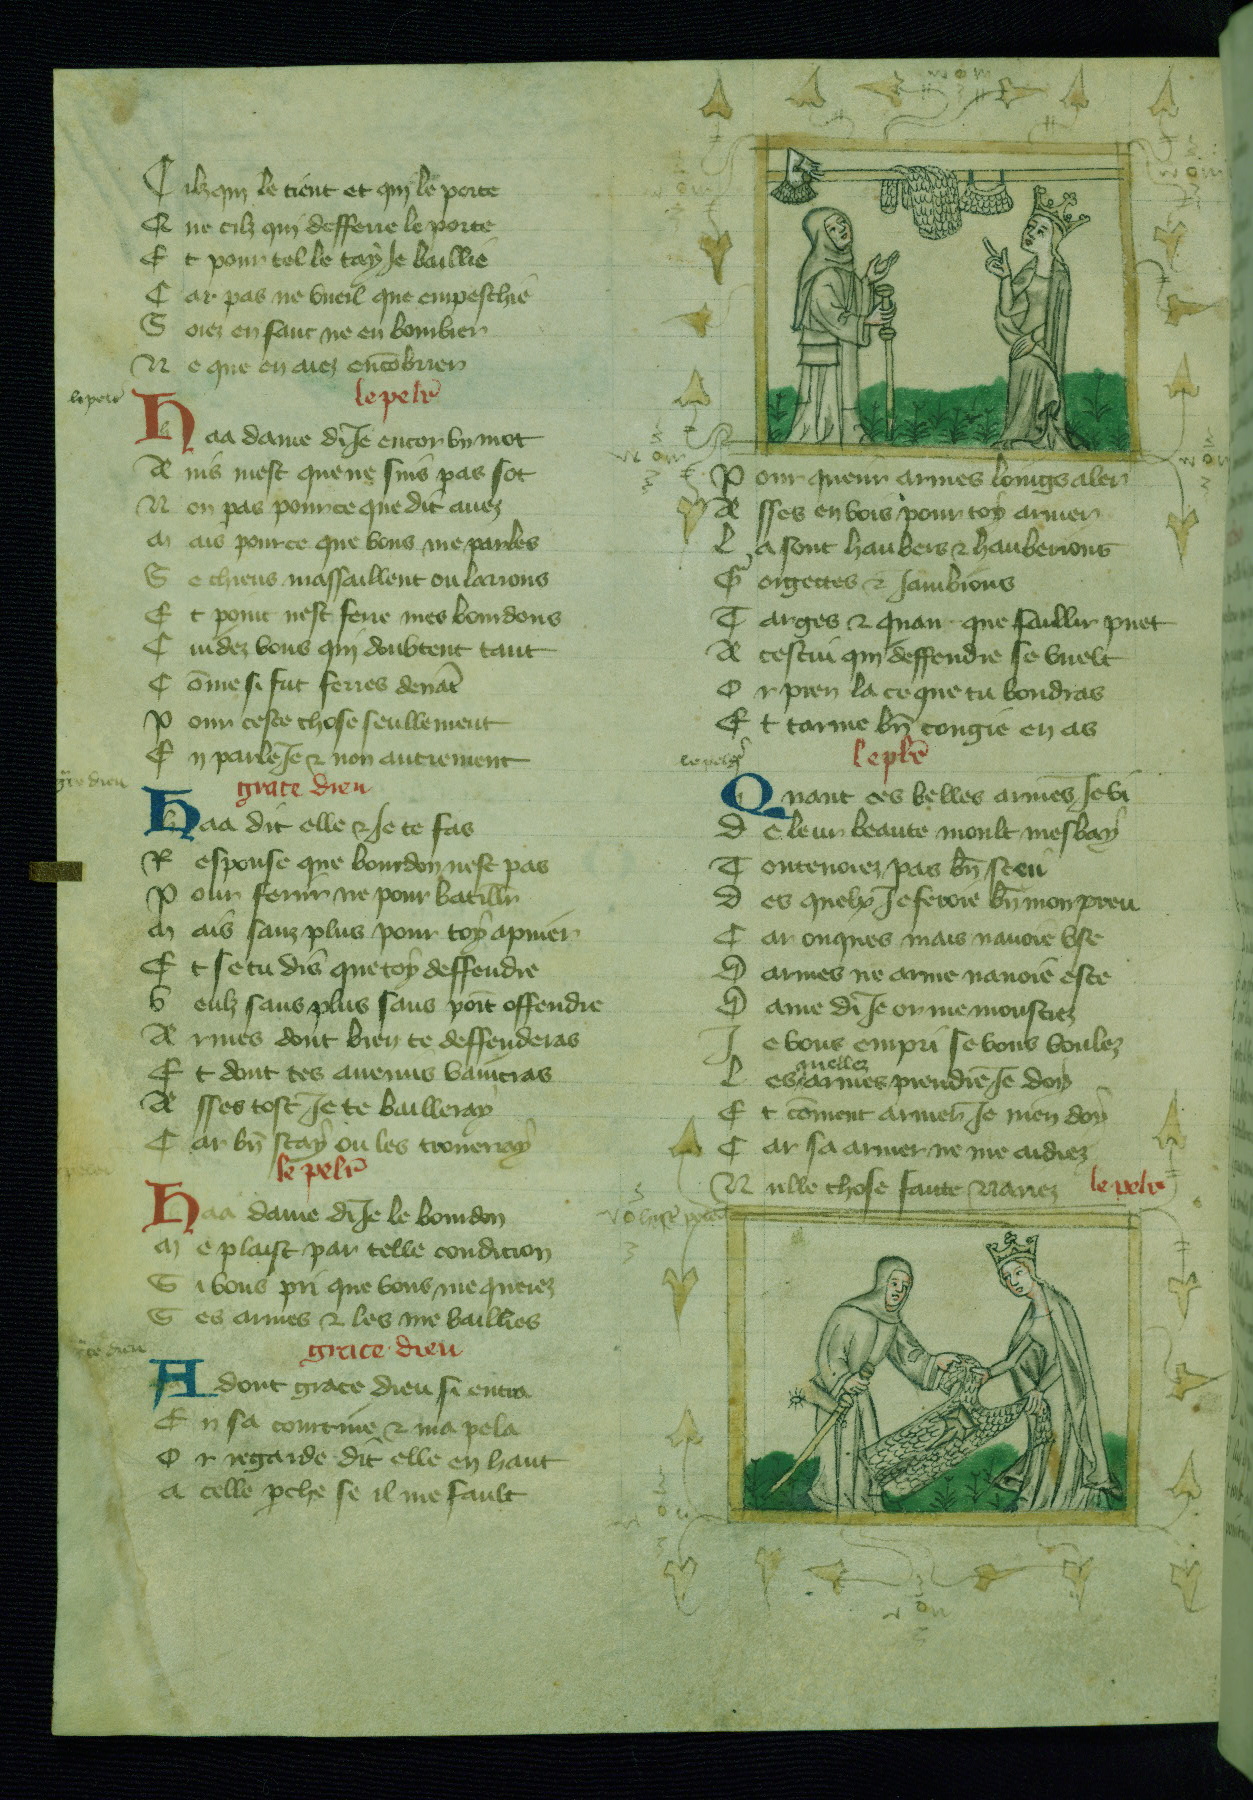 C ilz qui le tient et qui le porte
Q ne cilz qui defferre le porte
E t pour tel le tay Je baillie
C ar pas ne vueil que empeschie
S oiez en saut ne en bombier
N e que en aiez encōbrier
le pelr̄
H aa dame dī Je encor vn mot
A nis mest que ne suis pas sot
N on pas pour ce que dit auez
M ais pour ce que vous me parles
S e chiens massaillent ou larrons
E t point nest ferre mes bourdons
C uidez vous qui doubtent tant
C ōme si fut ferres deuāt
P our ceste chose seullement
E n parle Je ⁊ non autrement
grace dieu
H aa dit elle ⁊ Je te fas
R esponse que bourdon nest pas
P our ferir ne pour batillr̄
M ais sanz plus pour toy apuier
E t se tu dis que toy deffendre
V eulz sans plus sans poīt offendre
A rmes dont bien te deffenderas
E t dont tes anemis vaincras
A sses tost Je te bailleray
C ar bn̄ scay ou les trouueray
le pelr̄
H aa dame dī Je le bourdon
M e plaist par telle condicion
S i vous pri que vous me querez
S es armes ⁊ les me baillies
grace dieu
A dont grace dieu si entra
E n sa courtine ⁊ ma pela
O r regarde dit elle en haut
A celle pche se il me fault
P our querir armes loings aler
A sses en vois pour toy armer
L a sont haubers ⁊ hauberions
G orgettes ⁊ Jambions
T arges ⁊ quan que faillir puet
A cestui qui deffendre se vuelt
O r pren la ce que tu vondras
E t tarme bn̄ congie en as
le plr̄
Q uant ces belles armes Je vi
D e leur beaute moult mesbay
T outeuoiez pas bn̄ sceu
D es quelx Je feroie bn̄ mon preu
C ar onques mais nauoie vse
D armes ne arme nauoie este
D ame dī Je or me monstrez
J e vous empri se vous voulez
L es quelles armes prendre Je doy
E t cōment armer Je men doy
C ar sa armer ne me aidiez
N ulle chose faute nariez
le pelr̄